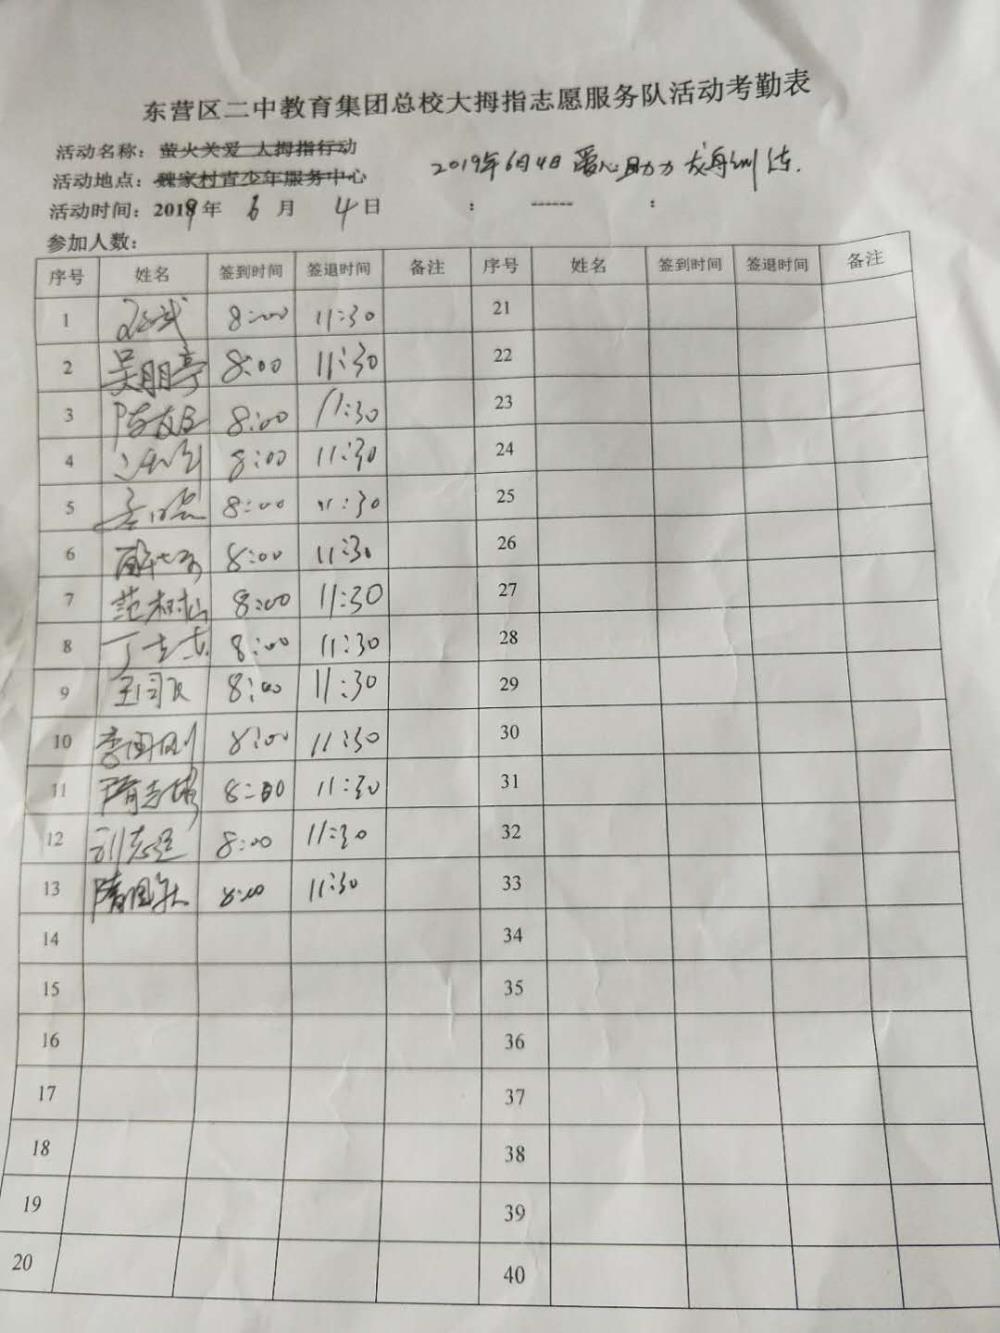 东营区二中教育集团总校大拇指志愿服务队活动考勤表
活动名称：萤火关爱 大拇指行动
2019年6月4日 爱心助力龙舟训练.
活动地点：魏家村青少年服务中心
活动时间：2019年 6 月 4日 : ------ :
参加人数：
序号 姓名 签到时间 签退时间 备注 序号 姓名 签到时间 签退时间 备注
1 8:00 11:30 21
2 吴朋亭 8:00 11:30 22
3 8:00 11:30 23
4 8:00 11:30 24
5 8:00 11:30 25
6 8:00 11:30 26
7 范树山 8:00 11:30 27
8 丁志 8:00 11:30 28
9 8:00 11:30 29
10 李国刚 8:00 11:30 30
11 隋 8:00 11:30 31
12 刘志 8:00 11:30 32
13 隋国 8:00 11:30 33
14 34
15 35
16 36
17 37
18 38
19 39
20 40